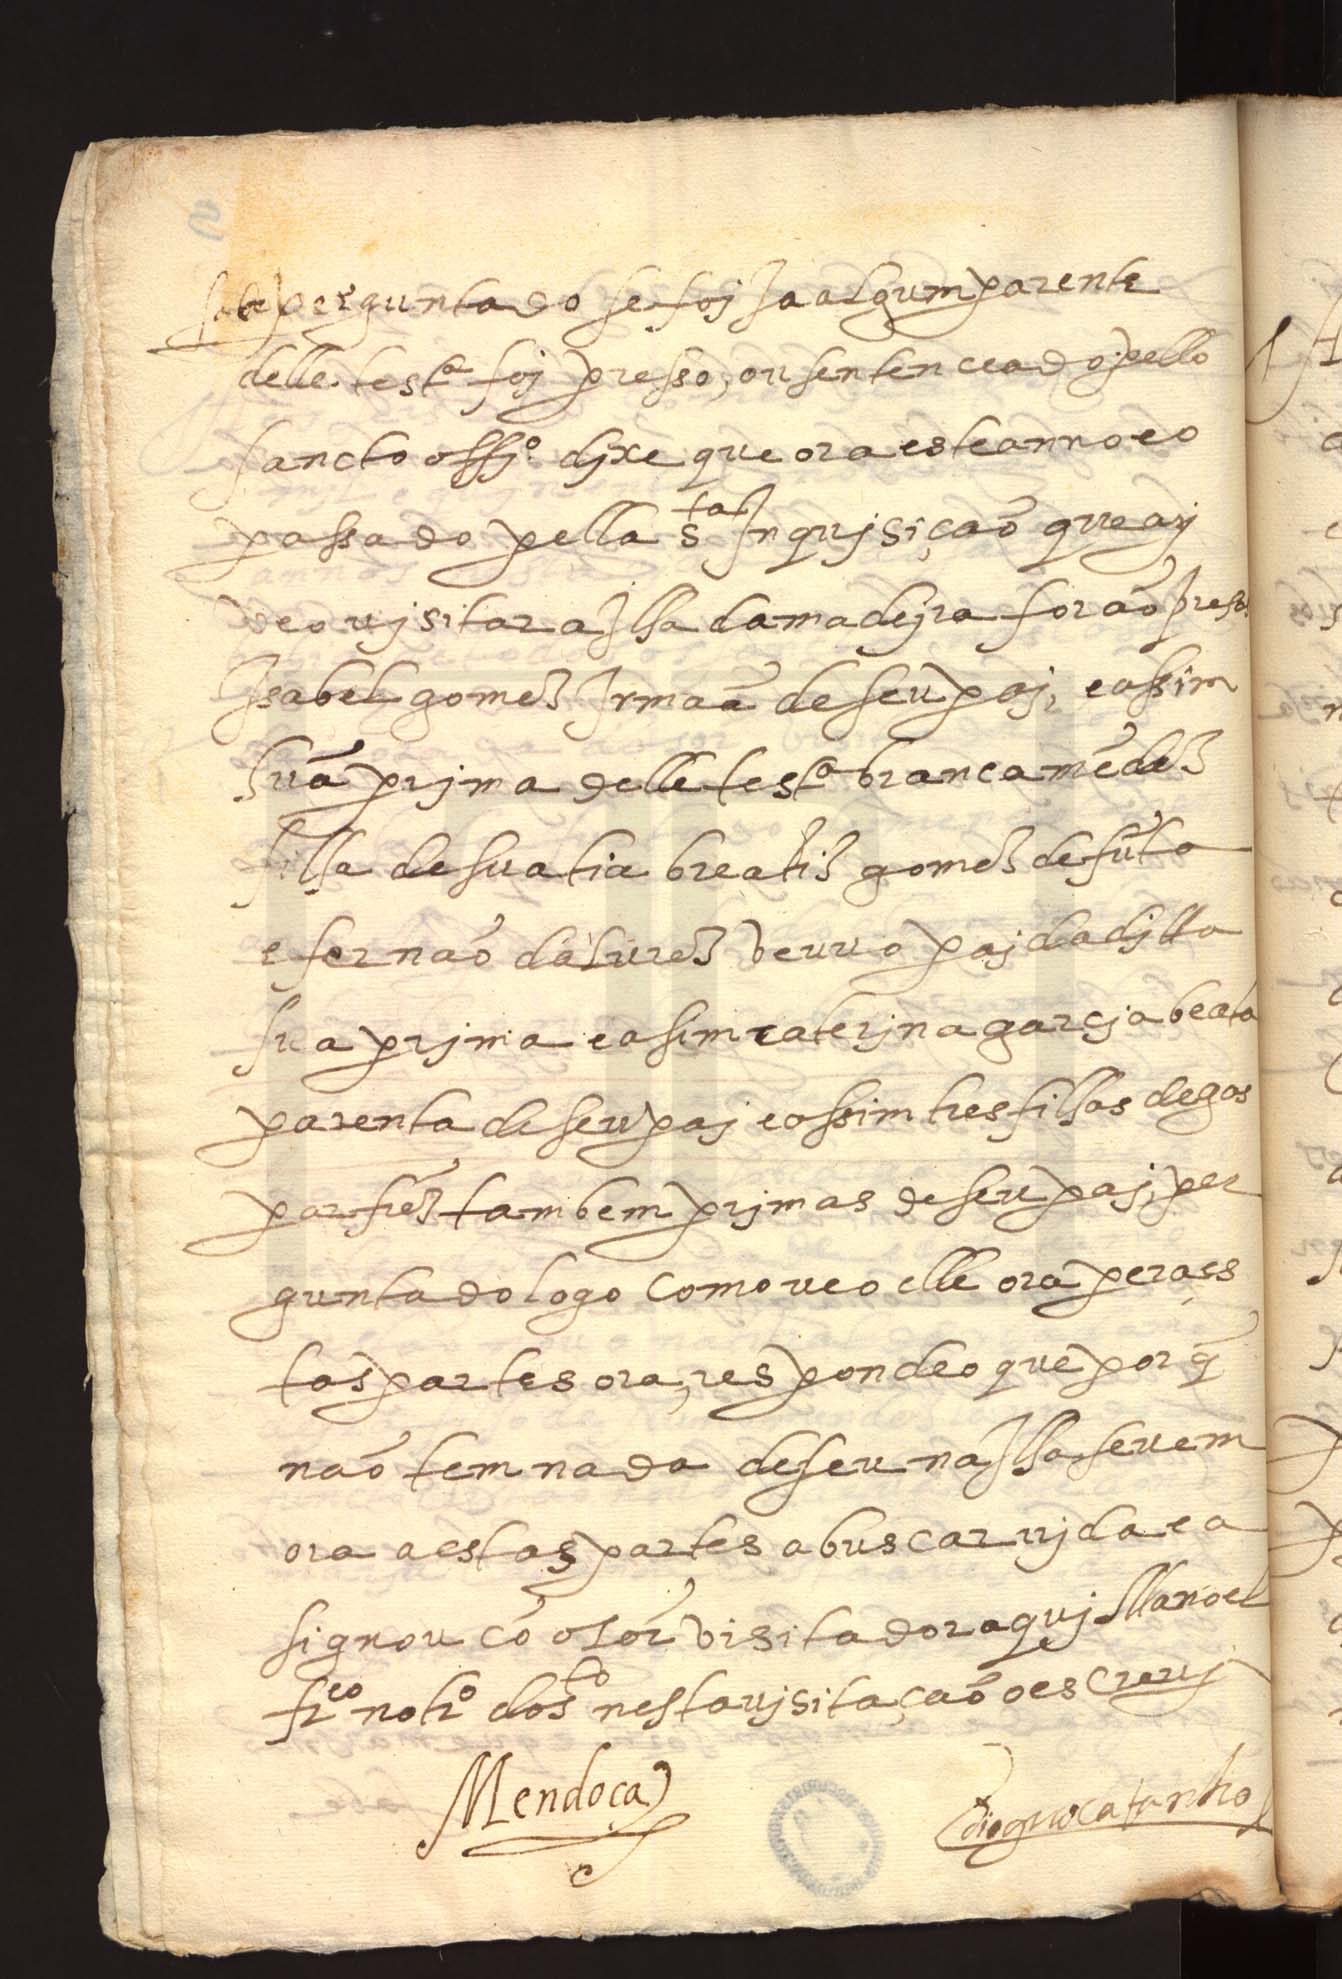 perguntado se foj Ja algum parente
delle testª foj presso, ou sentenceado pello
sancto offjº djxe que ora este anno e o
passado pella Sta Inqujsição que aj
veo vjsitar a Jlha da madejra forão presos
Isabel gomes Irmaã de seu paj, e assim
huã prjma delle testª branca mẽdes
filha de sua tia breatis gomes defũta
e fernão dalures veuuo paj da djtta
sua prjma e asim caterjna garcja beata
parenta de seu paj e assim tres filhas de gas
par frz tambem prjmas de seu paj, per
guntado logo como ueo elle ora pera es
tas partes ora, respondeo que por q̃
não tem nada de seu na Jlha se uem
ora a estas partes a buscar vjda e a
signou cõ o sor visitador aquj Manoel
frco notrº do sto nesta vjsitação o escreuj
Mendoça
diogo catanho